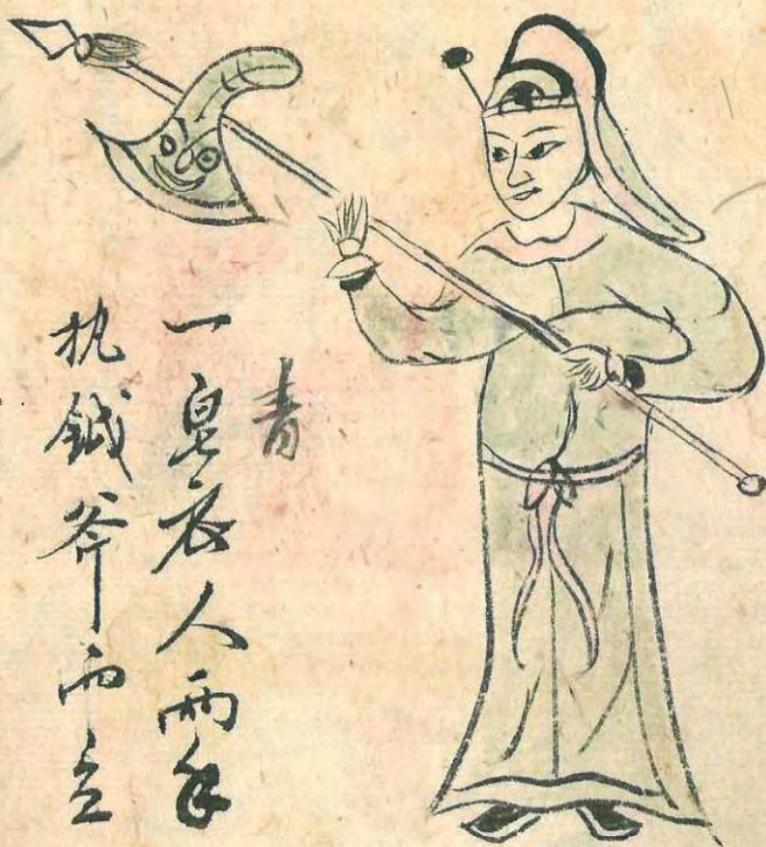 青
一皂衣人两手
执鉞斧而立